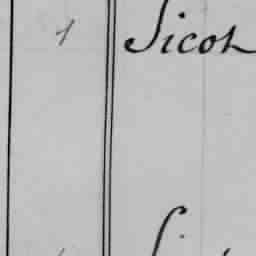 1 Sicot